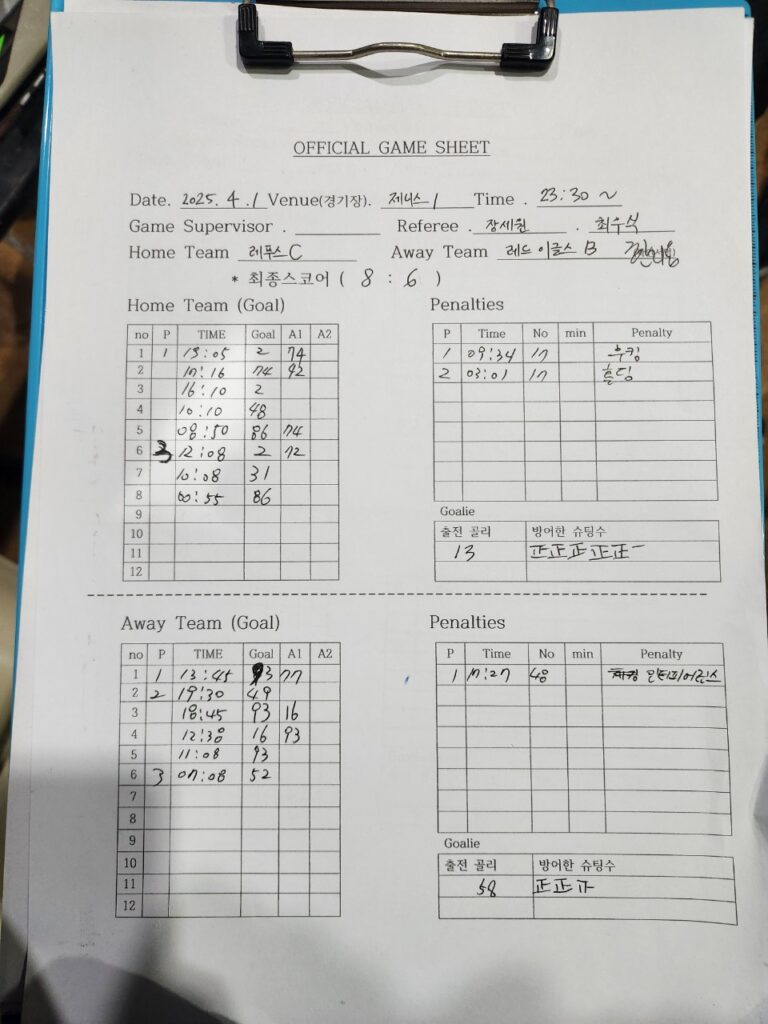 OFFICIAL GAME SHEET
Date. 2025. 4. 1 Venue(경기장). 제니스 1 Time . 23:30 ~
Game Supervisor . Referee . 장세원 . 최우석
Home Team 레푸스 C Away Team 레드 이글스 B
* 최종스코어 ( 8 : 6 )
Home Team (Goal)
no P TIME Goal A1 A2
1 1 13:05 2 74
2 17:16 74 92
3 16:10 2
4 10:10 48
5 08:50 86 74
6 3 12:08 2 72
7 10:08 31
8 00:55 86
9
10
11
12
Penalties
P Time No min Penalty
1 09:34 17 후킹
2 03:01 17 홀딩
Goalie
출전 골리 방어한 슈팅수
13 正正正正正一
Away Team (Goal)
no P TIME Goal A1 A2
1 1 13:45 93 77
2 2 19:30 49
3 18:45 93 16
4 12:38 16 93
5 11:08 93
6 3 07:08 52
7
8
9
10
11
12
Penalties
P Time No min Penalty
1 17:27 48 인터피어런스
Goalie
출전 골리 방어한 슈팅수
58 正正